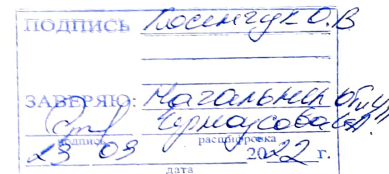 ПОДПИСЬ Косенчук О.В
ЗАВЕРЯЮ: Начальник
Черноусова
подпись расшифровка
23 09 2022 г.
дата